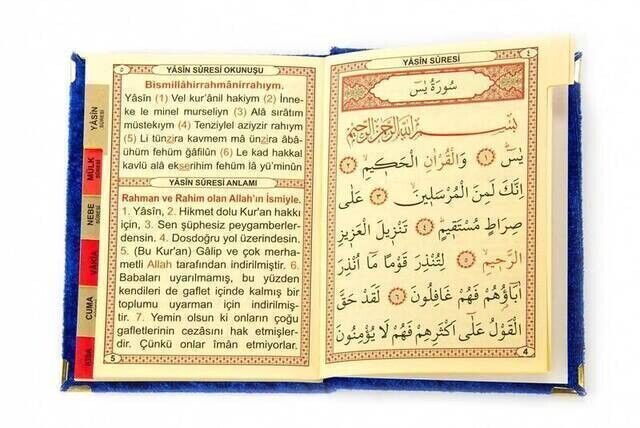 YÂSÎN SÛRESİ
٤
سُورَةُ يٰسٓ
بِسْمِ اللّٰهِ الرَّحْمٰنِ الرَّحِيمِ
يٰسٓ ﴿١﴾ وَالْقُرْاٰنِ الْحَكِيمِ ﴿٢﴾
اِنَّكَ لَمِنَ الْمُرْسَلِينَ ﴿٣﴾ عَلٰى
صِرَاطٍ مُسْتَقِيمٍ ﴿٤﴾ تَنْزِيلَ الْعَزِيزِ
الرَّحِيمِ ﴿٥﴾ لِتُنْذِرَ قَوْمًا مَٓا اُنْذِرَ
اٰبَٓاؤُ۬هُمْ فَهُمْ غَافِلُونَ ﴿٦﴾ لَقَدْ حَقَّ
الْقَوْلُ عَلٰٓى اَكْثَرِهِمْ فَهُمْ لَا يُؤْمِنُونَ
4
٥
YÂSÎN SÛRESİ OKUNUŞU
Bismillâhirrahmânirrahıym.
Yâsîn (1) Vel kur'ânil hakiym (2) İnne-
ke le minel murseliyn (3) Alâ sırâtım
müstekıym (4) Tenziylel aziyzir rahıym
(5) Li tünzira kavmem mâ ünzira âbâ-
ühüm fehüm ğâfilûn (6) Le kad hakkal
kavlü alâ ekserihim fehüm lâ yü'minûn
YÂSÎN SÛRESİ ANLAMI
Rahman ve Rahim olan Allah'ın İsmiyle.
1. Yâsîn, 2. Hikmet dolu Kur'an hakkı
için, 3. Sen şüphesiz peygamberler-
densin. 4. Dosdoğru yol üzerindesin.
5. (Bu Kur'an) Gâlip ve çok merha-
metli Allah tarafından indirilmiştir. 6.
Babaları uyarılmamış, bu yüzden
kendileri de gaflet içinde kalmış bir
toplumu uyarman için indirilmiş-
tir. 7. Yemin olsun ki onların çoğu
gafletlerinin cezasını hak etmişler-
dir. Çünkü onlar îmân etmiyorlar.
5
YÂSÎN
SÛRESİ
MÜLK
SÛRESİ
NEBE
SÛRESİ
VÂKIA
CUMA
KISA